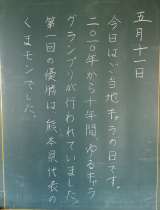 五月十一日
今日はご当地キャラの日です。
二〇一〇年から十年間、ゆるキャラ
グランプリが行われていました。
第一回の優勝は、熊本県代表の
くまモンでした。